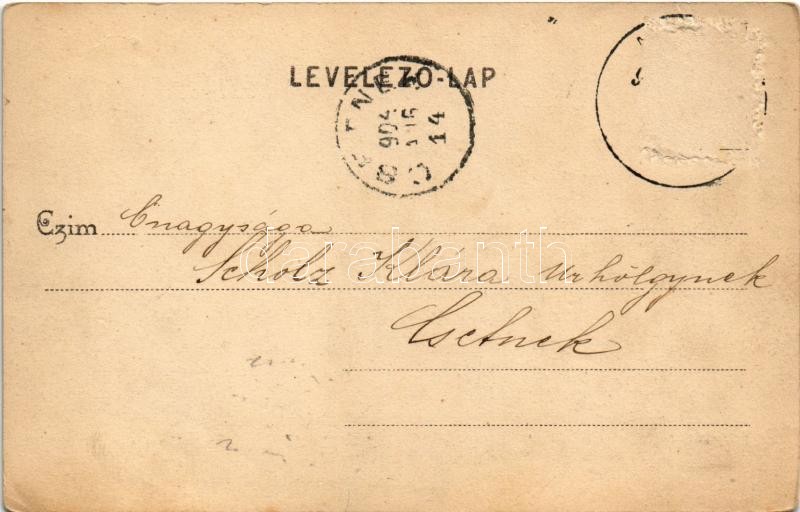 LEVELEZŐ-LAP
904
14
Czim Őnagysága
Scholz Klára urhölgynek
Csetnek
darabanth